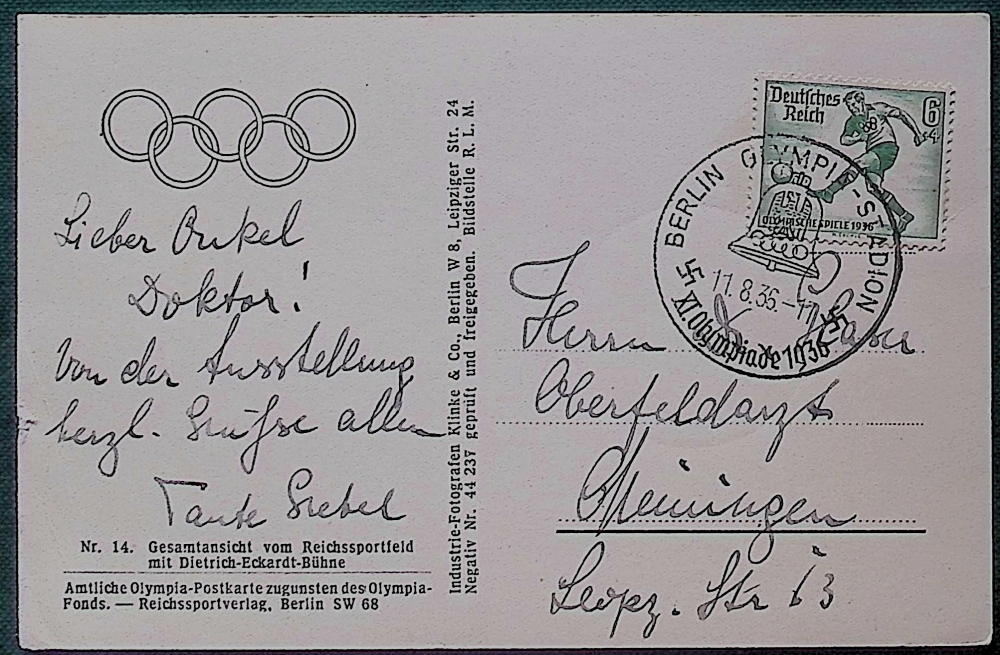 Lieber Onkel
Doktor!
Von der Ausstellung
herzl. Grüsse allen
Tante
Nr. 14. Gesamtansicht vom Reichssportfeld
mit Dietrich-Eckardt-Bühne
Amtliche Olympia-Postkarte zugunsten des Olympia-
Fonds. — Reichssportverlag, Berlin SW 68
Industrie-Fotografen Klinke & Co., Berlin W 8, Leipziger Str. 24
Negativ Nr. 44 237 geprüft und freigegeben. Bildstelle R. L. M.
Deutsches
Reich
6
+4
OLYMPISCHE SPIELE 1936
BERLIN OLYMPIA-STADION
11.8.36.-11
XI. Olympiade 1936
Herrn Dr.
Oberfeldarzt
Meiningen
Leipz. Str 13